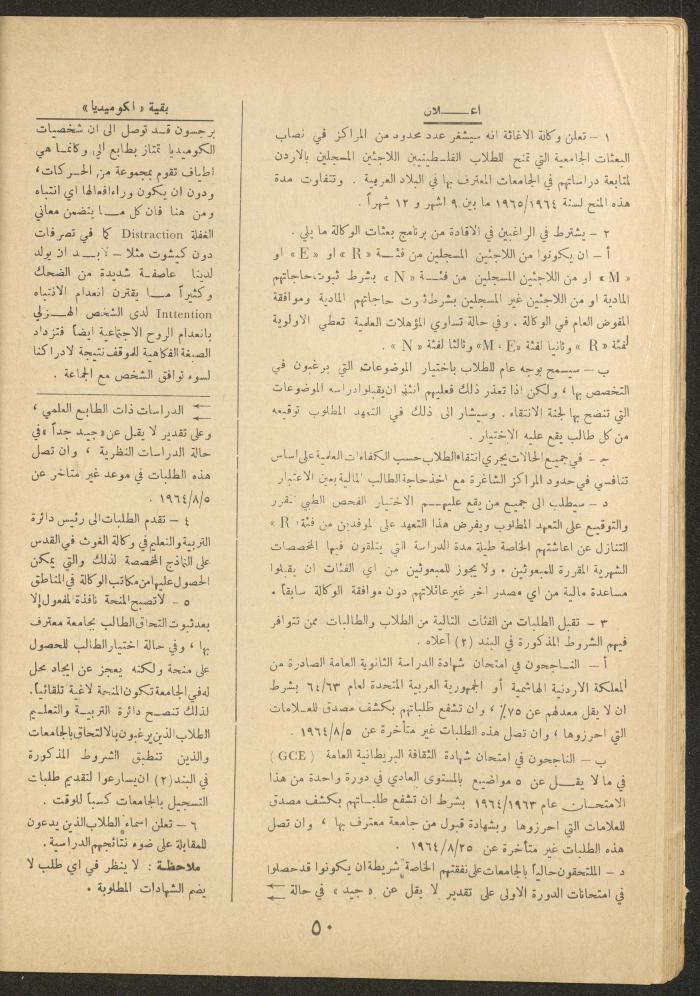 اعـــلان
١ – تعلن وكالة الاغاثة انه سيشغر عدد محدود من المراكز في نصاب
البعثات الجامعية التي تمنح للطلاب الفلسطينيين اللاجئين المسجلين بالاردن
لمتابعة دراساتهم في الجامعات المعترف بها في البلاد العربية . وتتفاوت مدة
هذه المنح لسنة ١٩٦٥/١٩٦٤ ما بين ٩ اشهر و ١٢ شهراً .
٢ – يشترط في الراغبين في الافادة من برنامج بعثات الوكالة ما يلي .
أ – ان يكونوا من اللاجئين المسجلين من فئــة « R » او « E » او
« M » او من اللاجئين المسجلين من فئــة « N » بشرط ثبوت حاجاتهم
المادية او من اللاجئين غير المسجلين بشرط ثبوت حاجاتهم المادية وموافقة
المفوض العام في الوكالة . وفي حالة تساوي المؤهلات العلمية تعطي الاولوية
لفئة « R » وثانيا لفئة «M ، E» وثالثا لفئة « N » .
ب – سيسمح بوجه عام للطلاب باختيار الموضوعات التي يرغبون في
التخصص بها ، ولكن اذا تعذر ذلك فعليهم أنئذ ان يقبلوا دراسه الموضوعات
التي تنصح بها لجنة الانتقاء . وسيشار الى ذلك في التعهد المطلوب توقيعه
من كل طالب يقع عليه الاختيار .
جـ – في جميع الحالات يجري انتقاء الطلاب حسب الكفاءات العلمية على اساس
تنافسي في حدود المراكز الشاغرة مع اخذ حاجة الطالب المالية بعين الاعتبار
د – سيطلب الى جميع من يقع عليهـم الاختيار الفحص الطبي المقرر
والتوقيع على التعهد المطلوب ويفرض هذا التعهد على الموفدين من فئة « R »
التنازل عن اعاشتهم الخاصة طيلة مدة الدراسة التي يتلقون فيها المخصصات
الشهرية المقررة للمبعوثين . ولا يجوز للمبعوثين من اي الفئات ان يقبلوا
مساعدة مالية من اي مصدر اخر غير عائلاتهم دون موافقة الوكالة سابقاً .
٣ – تقبل الطلبات من الفئات التالية من الطلاب والطالبات ممن تتوافر
فيهم الشروط المذكورة في البند (٢) أعلاه .
أ – النـاجحون في امتحان شهادة الدراسة الثانوية العامة الصادرة من
المملكة الاردنية الهاشمية أو الجمهورية العربية المتحدة لعام ٦٤/٦٣ بشرط
ان لا يقل معدلهم عن ٧٥٪ ، وان تشفع طلباتهم بكشف مصدق للعـلامات
التي احرزوها ، وان تصل هذه الطلبات غير متأخرة عن ١٩٦٤/٨/٥ .
ب – الناجحون في امتحان شهادة الثقافة البريطانية العامة ( GCE )
في ما لا يقـل عن ٥ مواضيع بالمستوى العادي في دورة واحدة من هذا
الامتحـان عام ١٩٦٤/١٩٦٣ بشرط ان تشفع طلبـاتهم بكشف مصدق
للعلامات التي احرزوها وبشهادة قبول من جامعة معترف بها ، وان تصل
هذه الطلبات غير متأخرة عن ١٩٦٤/٨/٢٥ .
د – الملتحقون حالياً بالجامعات على نفقتهم الخاصة شريطة ان يكونوا قد حصلوا
في امتحانات الدورة الاولى على تقدير لا يقل عن « جيد » في حالة
بقية « الكوميديا »
برجسون قـد توصل الى ان شخصيات
الكوميديا تمتاز بطابع الي وكانمـا هي
اطياف تقوم بمجموعة من الحـركات،
ودون ان يكون وراء افعالها اي انتباه
ومن هنا فان كل مـا يتضمن معاني
الغفلة Distraction كما في تصرفات
دون كيشوت مثلا – لابـد ان يولد
لدينا عاصفـة شديدة من الضحك
وكثيراً مـا يقترن انعدام الانتباه
Inttention لدى الشخص الهـزلي
بانعدام الروح الاجتماعية ايضاً فتزداد
الصبغة الفكاهية للموقف نتيجة لادراكنا
لسوء توافق الشخص مع الجماعة .
الدراسات ذات الطابع العلمي ،
وعلى تقدير لا يقـل عن «جيـد جداً» في
حالة الدراسات النظرية ، وان تصل
هذه الطلبات في موعد غير متاخر عن
١٩٦٤/٨/٥ .
٤ – تقدم الطلبات الى رئيس دائرة
التربية والتعليم في وكالة الغوث في القدس
على النماذج المخصصة لذلك والتي يمكن
الحصول عليها من مكاتب الوكالة في المناطق
٥ – لا تصبح المنحة نافذة المفعول إلا
بعد ثبوت التحاق الطالب بجامعة معترف
بها ، وفي حالة اختيار الطالب للحصول
على منحة ولكنه يعجز عن ايجاد محل
له في الجامعة تكون المنحة لاغية تلقائياً.
لذلك تنصـح دائرة التربيـة والتعليم
الطلاب الذين يرغبون بالالتحاق بالجامعات
والذين تنطبق الشروط المذكورة
في البند (٢) ان يسارعوا لتقديم طلبات
التسجيل بالجامعات كسباً للوقت .
٦ – تعلن اسماء الطلاب الذين يدعون
للمقابلة على ضوء نتائجهم الدراسية .
ملاحظـة : لا ينظر في اي طلب لا
يضم الشهادات المطلوبة .
٥٠